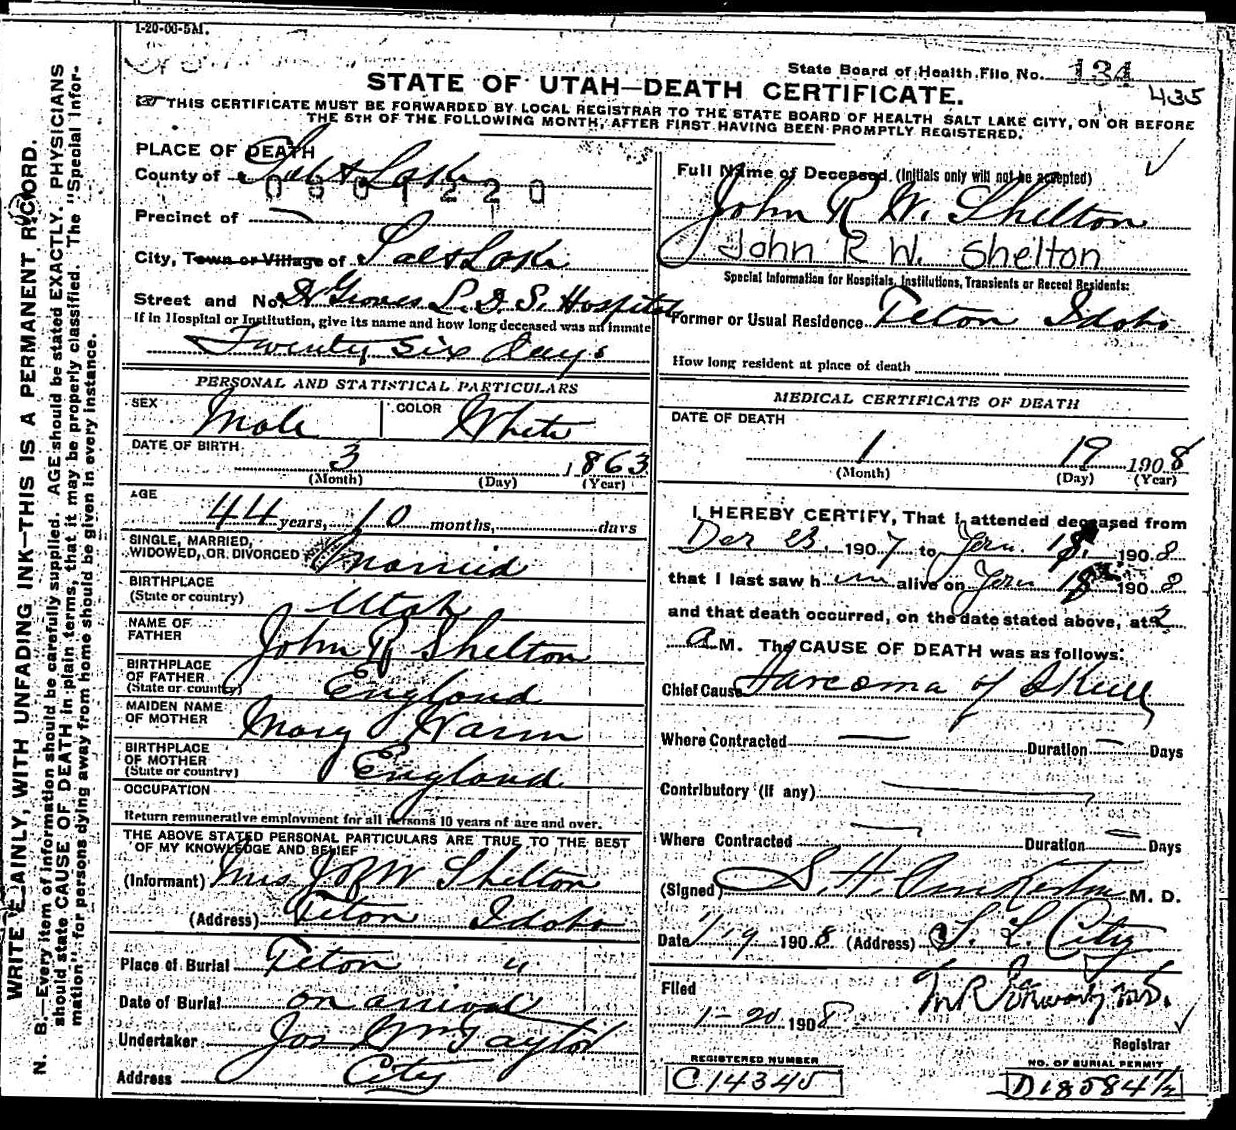 1-20-06-5M.
State Board of Health File No. 134
435
STATE OF UTAH—DEATH CERTIFICATE.
THIS CERTIFICATE MUST BE FORWARDED BY LOCAL REGISTRAR TO THE STATE BOARD OF HEALTH SALT LAKE CITY, ON OR BEFORE
THE 5TH OF THE FOLLOWING MONTH, AFTER FIRST HAVING BEEN PROMPTLY REGISTERED.
WRITE PLAINLY, WITH UNFADING INK—THIS IS A PERMANENT RECORD.
N. B.—Every item of information should be carefully supplied. AGE should be stated EXACTLY. PHYSICIANS
should state CAUSE OF DEATH in plain terms, that it may be properly classified. The "Special Infor-
mation" for persons dying away from home should be given in every instance.
PLACE OF DEATH
County of Salt Lake
0001220
Precinct of —
City, Town or Village of Salt Lake
Street and No. Dr Groves L. D. S. Hospital
If in Hospital or Institution, give its name and how long deceased was an inmate
Twenty Six days
PERSONAL AND STATISTICAL PARTICULARS
SEX Male COLOR White
DATE OF BIRTH 3 1863
(Month) (Day) (Year)
AGE 44 years, 10 months, days
SINGLE, MARRIED,
WIDOWED, OR DIVORCED Married
BIRTHPLACE
(State or country) Utah
NAME OF
FATHER John R Shelton
BIRTHPLACE
OF FATHER
(State or country) England
MAIDEN NAME
OF MOTHER Mary Warm
BIRTHPLACE
OF MOTHER
(State or country) England
OCCUPATION
Return remunerative employment for all persons 10 years of age and over.
THE ABOVE STATED PERSONAL PARTICULARS ARE TRUE TO THE BEST
OF MY KNOWLEDGE AND BELIEF
(Informant) Mrs J R W Shelton
(Address) Teton Idaho
Place of Burial Teton "
Date of Burial on arrival
Undertaker Jos Wm Taylor
Address City
Full Name of Deceased. (Initials only will not be accepted)
John R W. Shelton
John R W. Shelton
Special Information for Hospitals, Institutions, Transients or Recent Residents:
Former or Usual Residence Teton Idaho
How long resident at place of death
MEDICAL CERTIFICATE OF DEATH
DATE OF DEATH
1 19 1908
(Month) (Day) (Year)
I HEREBY CERTIFY, That I attended deceased from
Dec 23, 1907 to Jan. 18, 1908
that I last saw him alive on Jan 18 1908
and that death occurred, on the date stated above, at 2
a M. The CAUSE OF DEATH was as follows:
Chief Cause Sarcoma of Skull
Where Contracted — Duration — Days
Contributory (if any) —
Where Contracted — Duration — Days
(Signed) S. H. M. D.
Date 1/19 1908 (Address) S. L. City
Filed
1-20 1908
Registrar
REGISTERED NUMBER
C14345
NO. OF BURIAL PERMIT
D18584 1/2